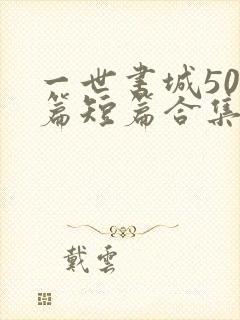 一世书城50
篇短篇合集
戴雲